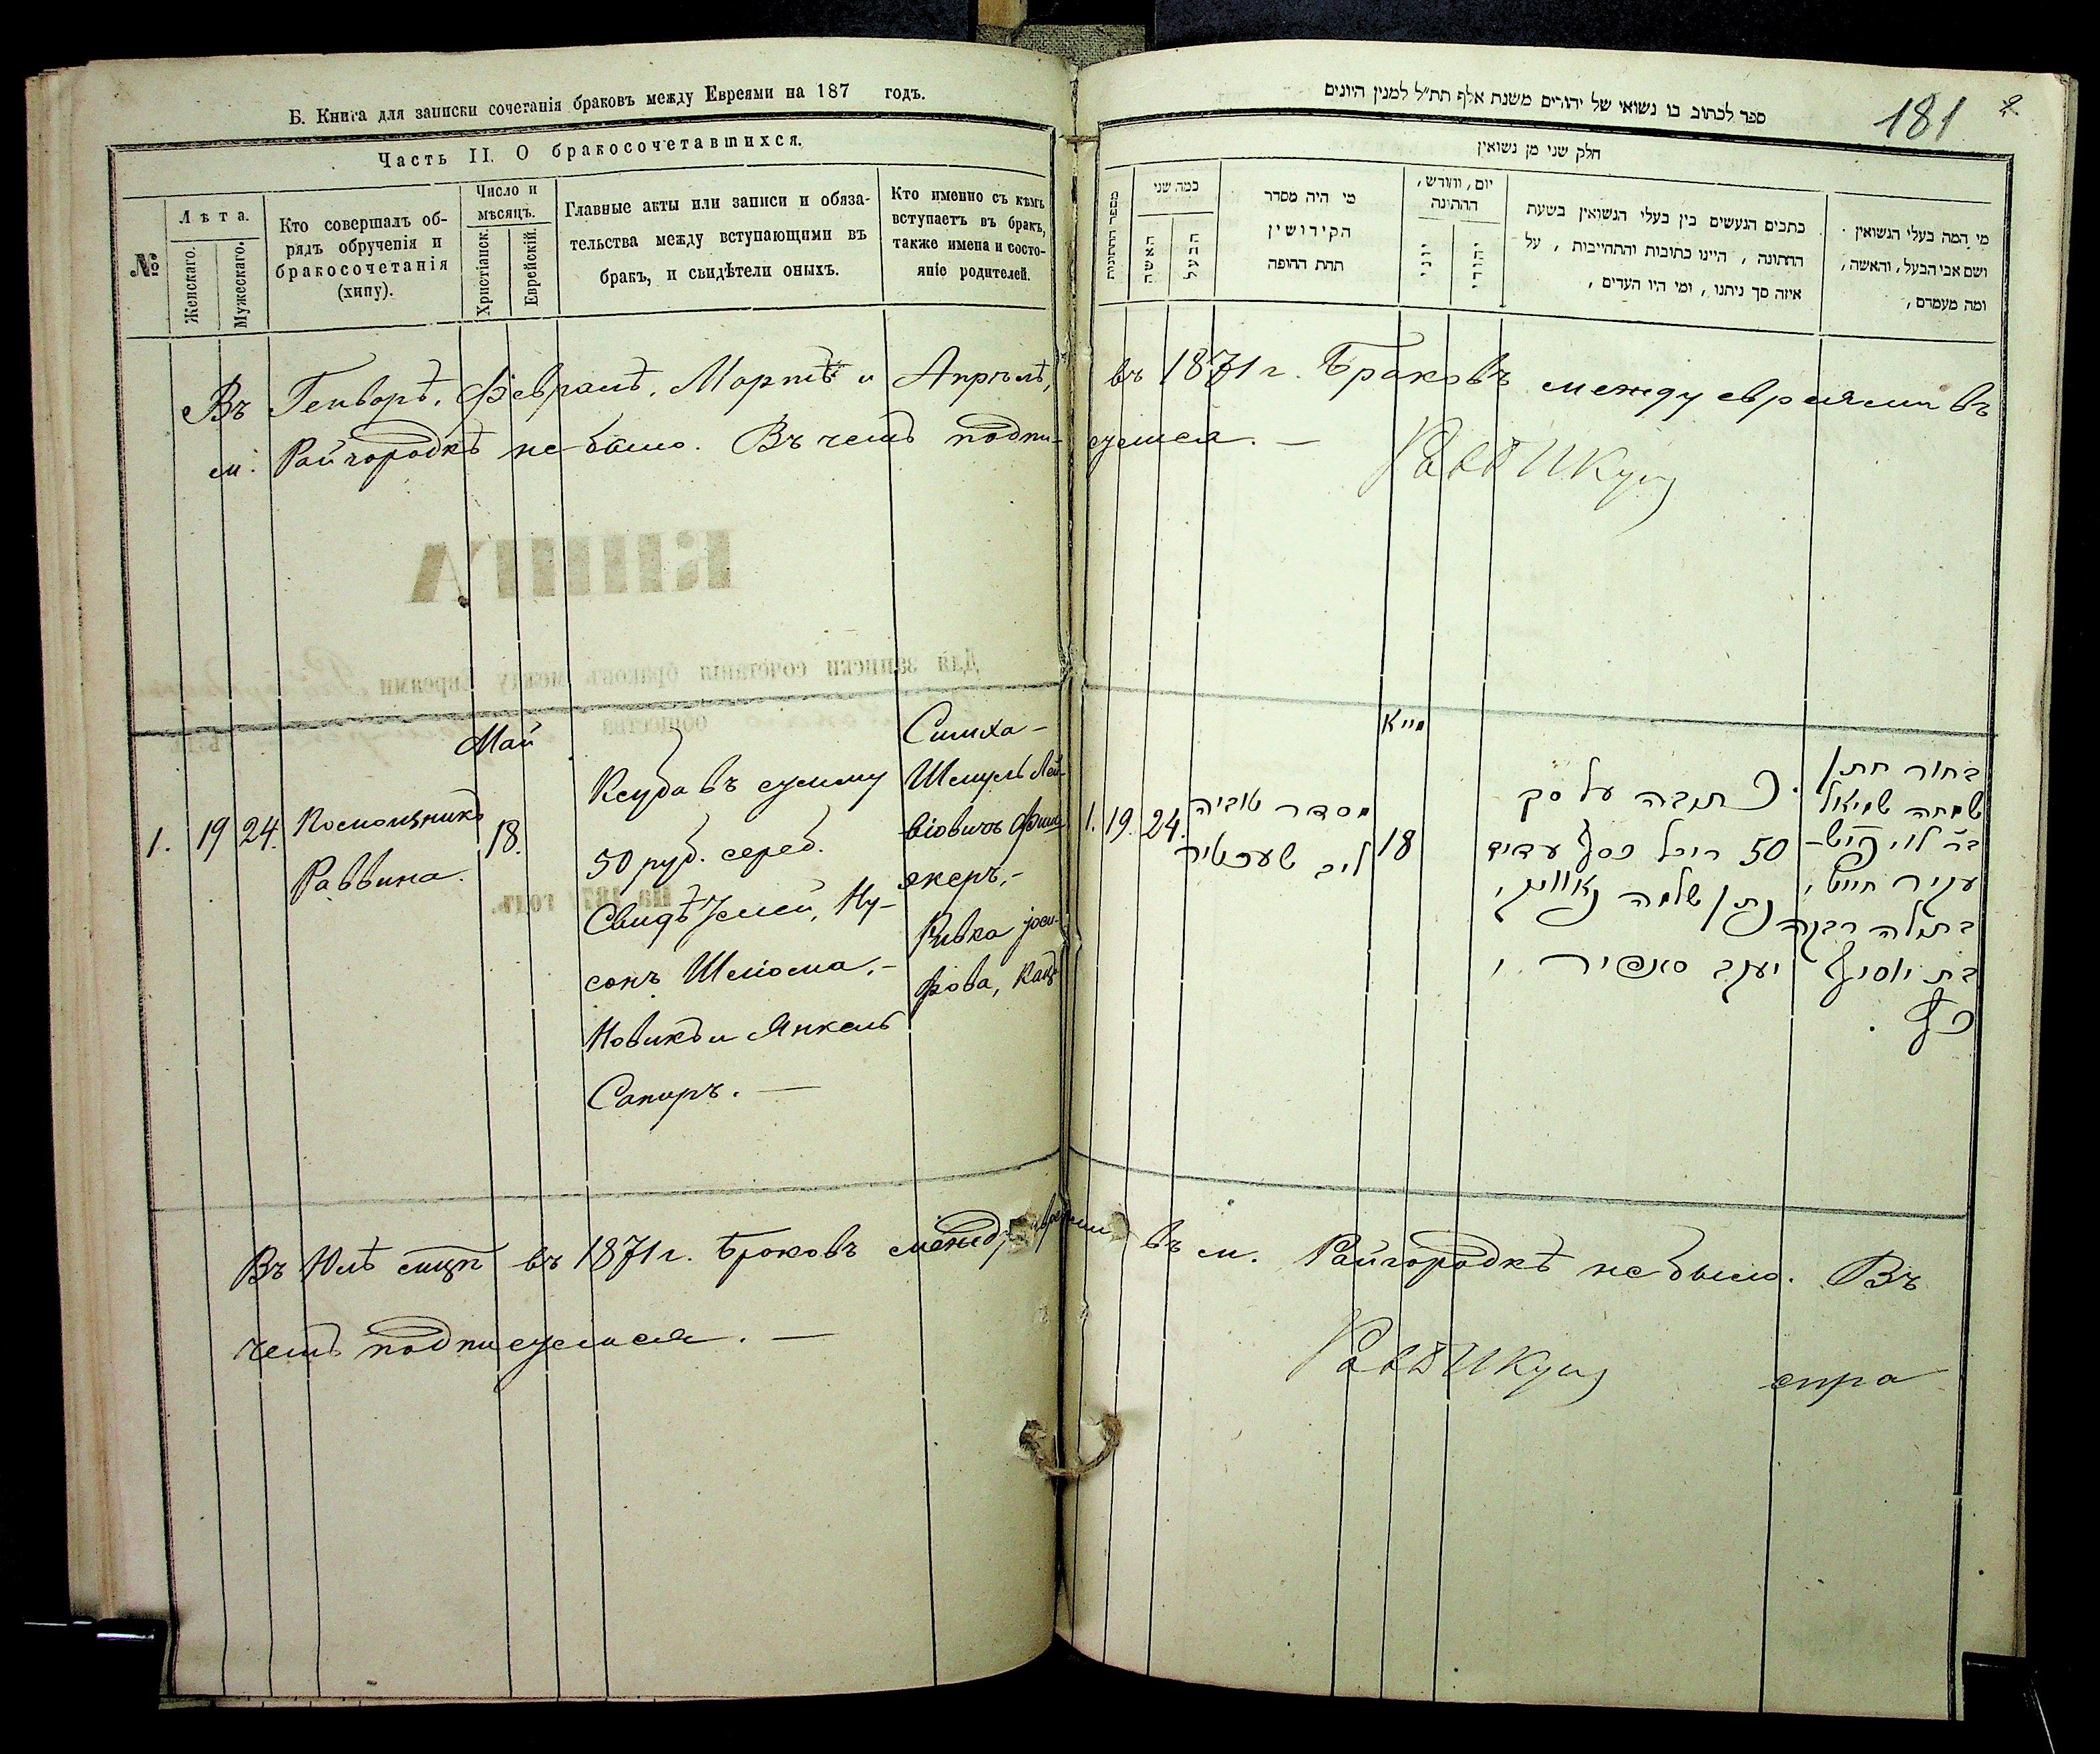 Б. Книга для записки сочетанія браковъ между Евреями на 187 годъ.
Часть II. О бракосочетавшихся.
№
Лѣта.
Женскаго.
Мужескаго.
Кто совершалъ об-
рядъ обрученія и
бракосочетанія
(хипу).
Число и
мѣсяцъ.
Христіанск.
Еврейскій.
Главные акты или записи и обяза-
тельства между вступающими въ
бракъ, и свидѣтели оныхъ.
Кто именно съ кѣмъ
вступаетъ въ бракъ,
также имена и состо-
яніе родителей.
Въ Генварѣ, Февралѣ, Мартѣ и Апрѣлѣ,
м. Райгородкѣ не было. Въ чемъ подпи-
КНИГА
Для записки сочетанія браковъ между Евреями
общества
На 187 годъ.
Май
1. 19 24.
Помощникъ
Раввина.
18.
Ксуба въ сумму
50 руб. сереб.
Свидѣтели, Ну-
сонъ Шліома,-
Новикъ и Янкель
Сапиръ. —
Симха-
Шмуль Лей-
біовичъ
Ривка Іоси-
фова, Кацъ
Въ Юнѣ въ 1871 г. Браковъ между
чемъ подписуемся. —
181
ספר לכתוב בו נשואי של יהודים משנת אלף תת״ל למנין היונים
חלק שני מן נשואין
מספר החתונות
כמה שני
האשה
הבעל
מי היה מסדר
הקידושין
תחת החופה
יום, וחודש,
החתונה
יוני
יהודי
כתבים הנעשים בין בעלי הנשואין בשעת
החתונה, היינו כתובות והתחייבות, על
איזה סך ניתנו, ומי היו העדים,
מי המה בעלי הנשואין
ושם אבי הבעל, והאשה,
ומה מעמדם,
въ 1871 г. Браковъ между евреями въ
суемся. —
מייא
1. 19. 24.
מסדר טוביה
ליב
18
כתובה על סך
50 כסף עדים
נתן שלמה נאוויק,
יעקב סאפיר
בחור חתן
שמחה שמואל
בתולה רבקה
בת יוסף
כץ.
въ м. Райгородкѣ не было. Въ